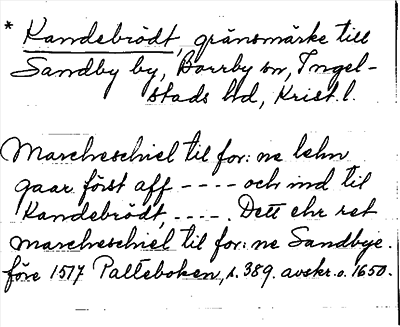 * Kandebrödt, gränsmärke till
Sandby by, Borrby sn, Ingel-
stads hd, Krist. l.
Marcheschiel til for: ne lehn
gaar först aff ---- och ind til
Kandebrödt, ----. Dett ehr ret
marcheschiel til for: ne Sandbye.
före 1517 Palteboken, s. 389. avskr. o. 1650.